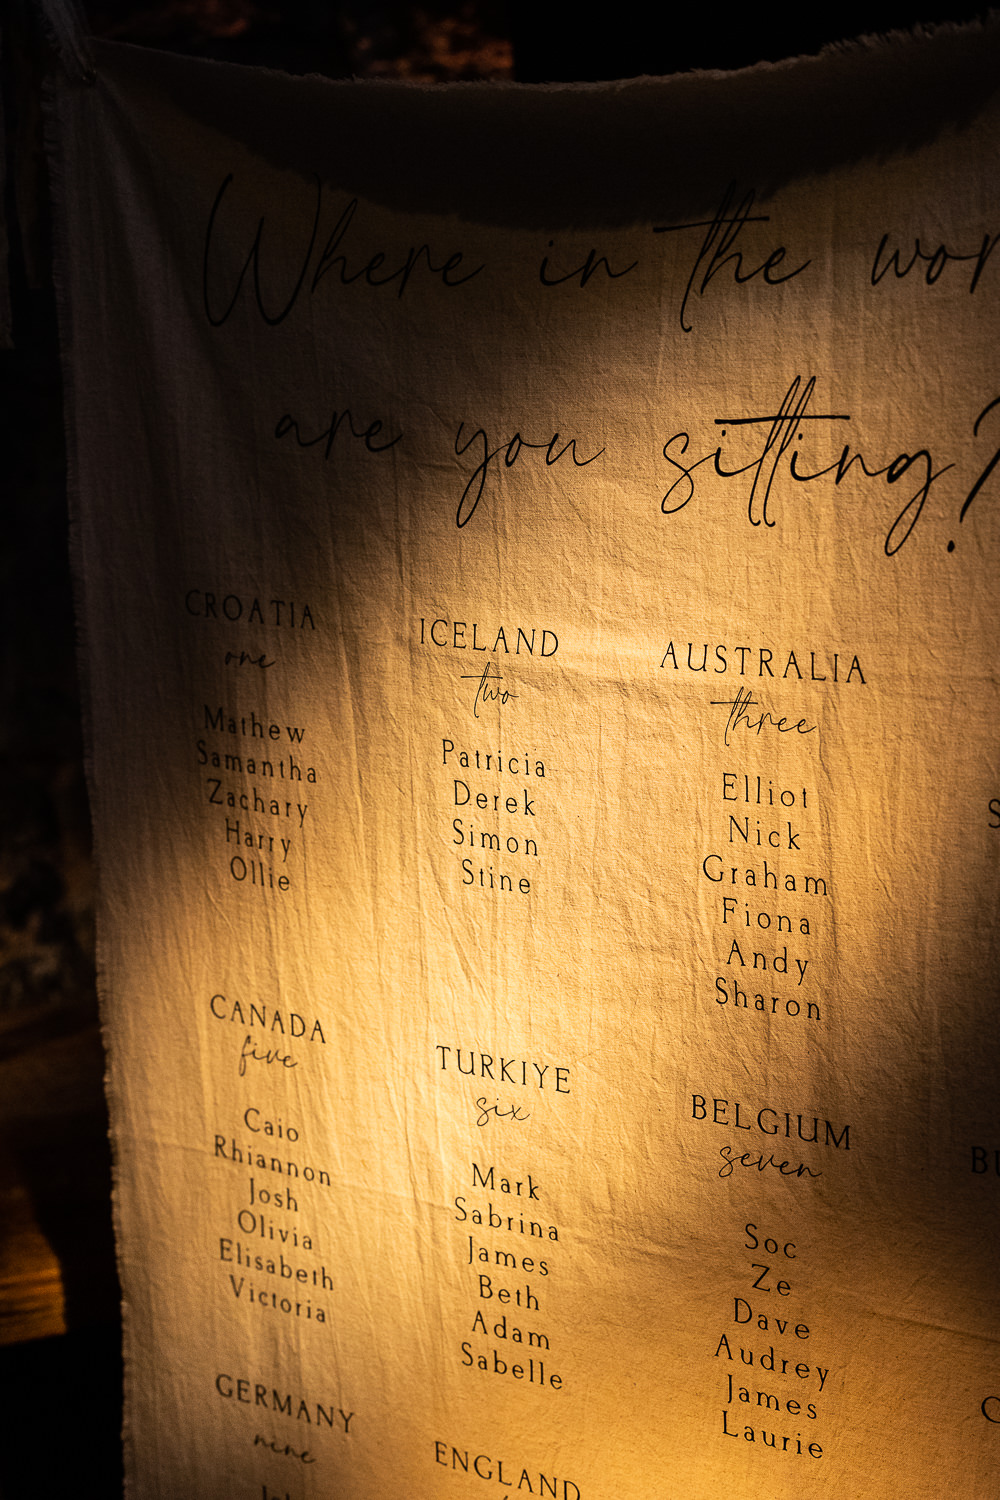 Where in the
are you sitting?
CROATIA
one
Mathew
Samantha
Zachary
Harry
Ollie
ICELAND
two
Patricia
Derek
Simon
Stine
AUSTRALIA
three
Elliot
Nick
Graham
Fiona
Andy
Sharon
CANADA
five
Caio
Rhiannon
Josh
Olivia
Elisabeth
Victoria
TURKIYE
six
Mark
Sabrina
James
Beth
Adam
Sabelle
BELGIUM
seven
Soc
Ze
Dave
Audrey
James
Laurie
GERMANY
nine
ENGLAND